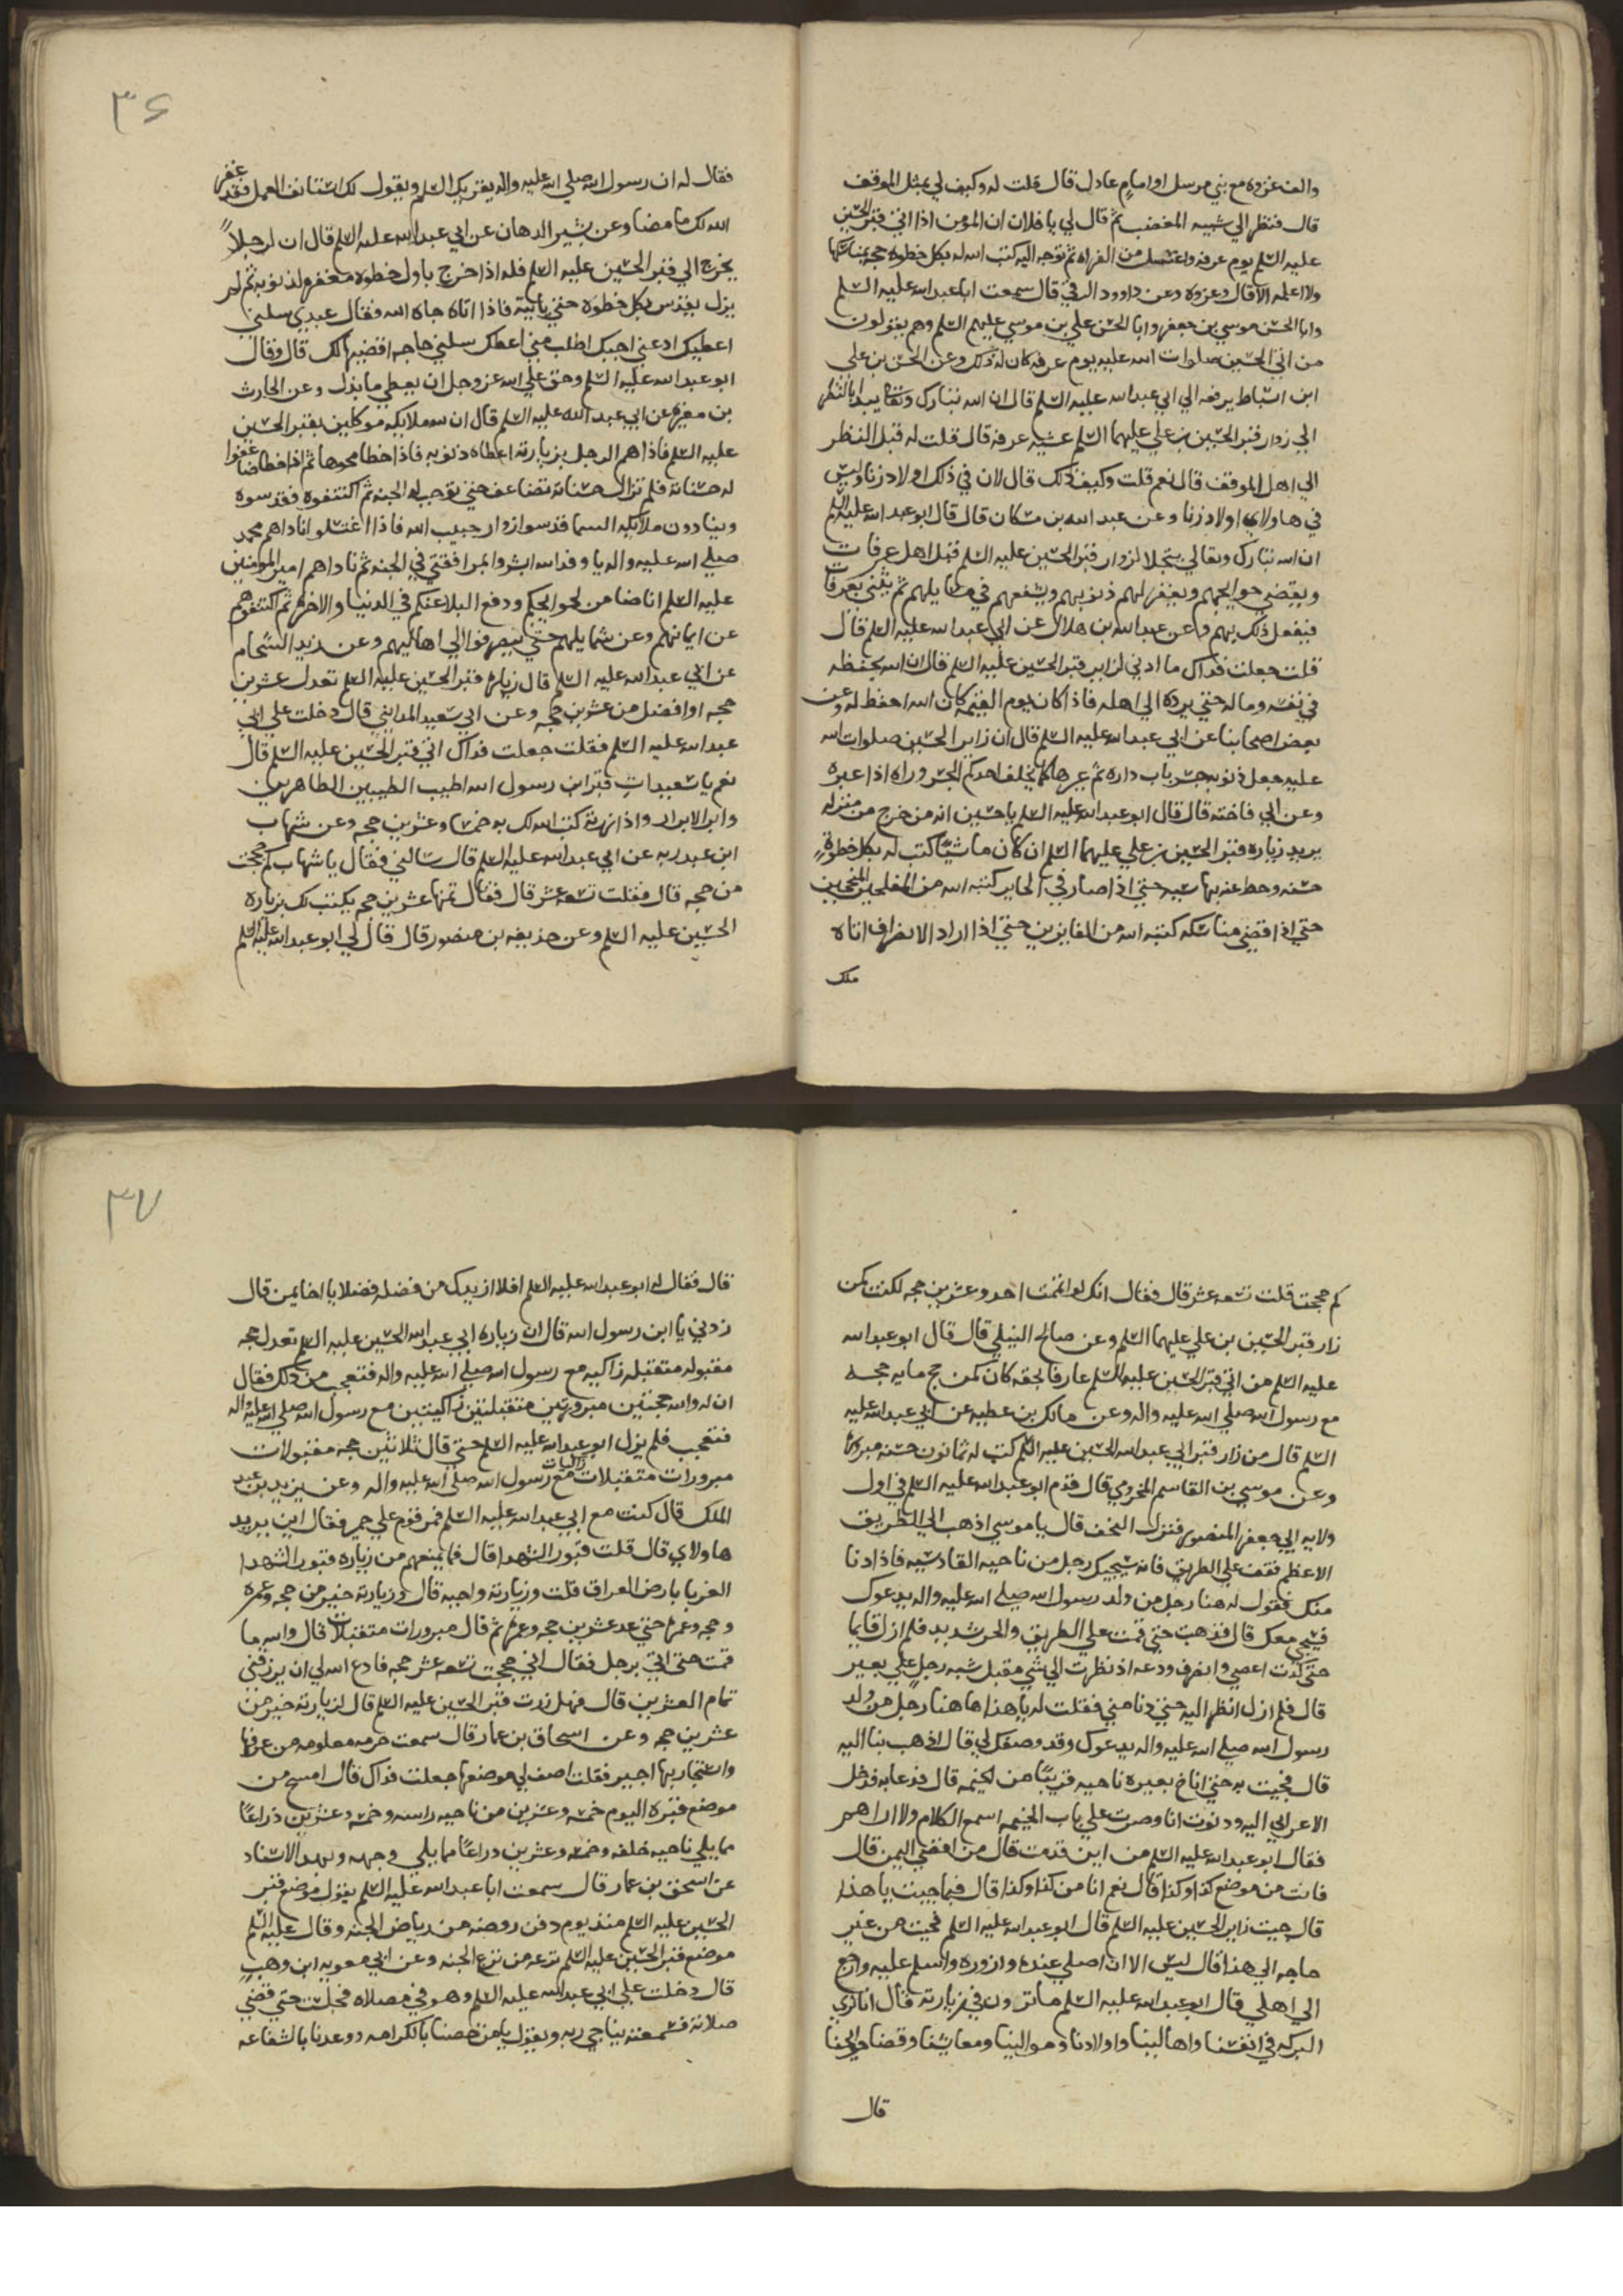 والف غزوه مع نبي مرسل او امام عادل قال قلت له وكيف لي بمثل الموقف
قال فنظر الي شبيه المغضب ثم قال لي يا فلان ان المومن اذا اتي قبر الحسين
عليه السلم يوم عرفه واغتسل من الفراه ثم توجه اليه كتب الله له بكل خطوه حجه بمناسكها
ولا اعلمه الا قال وغزوه وعن داوود الرقي قال سمعت ابا عبد الله عليه السلم
وابا الحسن موسي بن جعفر وابا الحسن علي بن موسي عليهم السلم وهم يقولون
من اتي الحسين صلوات الله عليه يوم عرفه كان له ذلك وعن الحسن بن علي
ابن اسباط يرفعه الي ابي عبد الله عليه السلم قال ان الله تبارك وتعالي يبدا بالنظر
الي زوار قبر الحسين بن علي عليهما السلم عشيه عرفه قال قلت له قبل النظر
الي اهل الموقف قال نعم قلت وكيف ذلك قال لان في ذلك اولاد زنا وليس
في هاولاي اولاد زنا وعن عبد الله بن مسكان قال قال ابو عبد الله عليه السلم
ان الله تبارك وتعالي يتجلا لزوار قبر الحسين عليه السلم قبل اهل عرفات
ويقضي حوايجهم ويغفر لهم ذنوبهم ويشفعهم في مسايلهم ثم يثني بعرفات
فيفعل ذلك بهم وعن عبد الله بن هلال عن ابي عبد الله عليه السلم قال
قلت جعلت فداك ما ادني لزاير قبر الحسين عليه السلم قال ان الله يحفظه
في نفسه وماله حتي يرده الي اهله فاذا كان يوم القيمه كان الله احفظ له وعن
بعض اصحابنا عن ابي عبد الله عليه السلم قال ان زاير الحسين صلوات الله
عليه جعل ذنوبه جسر باب داره ثم عبرها كما يخلف احدكم الجسر وراه اذا عبره
وعن ابي فاخته قال قال ابو عبد الله عليه السلم يا حسين انه من خرج من منزله
يريد زياره قبر الحسين بن علي عليهما السلم ان كان ماشيًا كتب له بكل خطوةٍ
حسنه وحط عنه بها سيه حتي اذا صار في الحاير كتبه الله من المفلحين المنجحين
حتي اذا قضي مناسكه كتبه الله من الفايزين حتي اذا اراد الانصراف اتاه
ملك
٣۶
فقال له ان رسول الله صلي الله عليه واله يقريك السلم ويقول لك استانف العمل فقد غفر
الله لك ما مضا وعن بشير الدهان عن ابي عبد الله عليه السلم قال ان لرجلاً
يخرج الي قبر الحسين عليه السلم فله اذا خرج باول خطوه مغفره لذنوبه ثم لم
يزل يقدس بكل خطوه حتي ياتيه فاذا اتاه جاه الله وفقال عبدي سلني
اعطيك ادعني اجبك اطلب مني اعطك سلني حاجه اقضيها لك قال وقال
ابو عبد الله عليه السلم وحق علي الله عز وجل ان يعطي ما بذل وعن الحارث
بن مغيره عن ابي عبد الله عليه السلم قال ان لله ملايكه موكلين بقبر الحسين
عليه السلم فاذا هم الرجل بزيارته اعطاه ذنوبه فاذا خطا محوها ثم اذا خطا ضاعفوا
له حسناته فلم تزال حسناته تضاعف حتي توجب له الجنه ثم اكتنفوه فقدسوه
وينادون ملايكه السما قدسوا زوار حبيب الله فاذا اغتسلوا ناداهم محمد
صلي الله عليه واله يا وفد الله ابشروا بمرافقتي في الجنه ثم ناداهم امير المومنين
عليه السلم انا ضامن لحوايجكم ودفع البلا عنكم في الدنيا والاخره ثم اكتنفوهم
عن ايمانهم وعن شمايلهم حتي ينصرفوا الي اهاليهم وعن زيد الشحام
عن ابي عبد الله عليه السلم قال زياره قبر الحسين عليه السلم تعدل عشرين
حجه او افضل من عشرين حجه وعن ابي سعيد المدايني قال دخلت علي ابي
عبد الله عليه السلم فقلت جعلت فداك اتي قبر الحسين عليه السلم قال
نعم يا سعيد ات قبر ابن رسول الله اطيب الطيبين الطاهرين
وابر الابرار واذا زرته كتب الله لك به خمسا وعشرين حجه وعن شهاب
ابن عبد ربه عن ابي عبد الله عليه السلم قال سالني فقال يا شهاب كم حججت
من حجه قال فقلت تسعه عشر قال فقال تمها عشرين حجه يكتب لك بزياره
الحسين عليه السلم وعن حذيفه بن منصور قال قال لي ابو عبد الله عليه السلم
كم حججت قلت تسعه عشر قال فقال انك لو اتممت احد وعشرين حجه لكنت كمن
زار قبر الحسين بن علي عليهما السلم وعن صالح النيلي قال قال ابو عبد الله
عليه السلم من اتي قبر الحسين عليه السلم عارفا بحقه كان كمن حج مايه حجه
مع رسول الله صلي الله عليه واله وعن مالك بن عطيه عن ابي عبد الله عليه
السلم قال من زار قبر ابي عبد الله الحسين عليه السلم كتب له ثمانون حسنه مبروره
وعن موسي بن القاسم المخرومي قال قدم ابو عبد الله عليه السلم في اول
ولايه ابي جعفر المنصور فنزل النجف قال يا موسي اذهب الي الطريق
الاعظم فقف علي الطريق فانه سيجيك رجل من ناحيه القادسيه فاذا دنا
منك فقول له هنا رجل من ولد رسول الله صلي الله عليه واله يدعوك
فسيجي معك قال فذهبت حتي قمت علي الطريق والحر شديد فلم ازل قايما
حتي كدت اعصي وانصرف ودعه اذ نظرت الي شي مقبل شبه رجلٍ علي بعير
قال فلم ازل انظر اليه حتي دنا مني فقلت له يا هذا ها هنا رجل من ولد
رسول الله صلي الله عليه واله يدعوك وقد وصفك لي قال اذهب بنا اليه
قال فجيت به حتي اناخ بعيره ناحيه قريبًا من الخيمه قال فدعا به فدخل
الاعرابي اليه ودنوت انا وصرت علي باب الخيمه اسمع الكلام ولا اراهم
فقال ابو عبد الله عليه السلم من اين قدمت قال من اقصي اليمن قال
فانت من موضع كذا وكذا قال نعم انا من كذا وكذا قال فيما جيت يا هذا
قال جيت زاير الحسين عليه السلم قال ابو عبد الله عليه السلم فجيت من غير
حاجه الي هذا قال ليس الا ان اصلي عنده وازوره واسلم عليه وارجع
الي اهلي قال ابو عبد الله عليه السلم ما ترون في زيارته قال انا نري
البركه في انفسنا واهالينا واولادنا وموالينا ومعايشنا وقضا حوايجنا
قال
٣٧
قال فقال له ابو عبد الله عليه السلم افلا ازيدك من فضله فضلا يا اخا يمن قال
زدني يا ابن رسول الله قال ان زياره ابي عبد الله الحسين عليه السلم تعدل حجه
مقبوله متقبله زاكيه مع رسول الله صلي الله عليه واله فتعجب من ذلك فقال
ان له والله حجتين مبرورتين متقبلتين زاكيتين مع رسول الله صلي الله عليه واله
فتعجب فلم يزل ابو عبد الله عليه السلم حتي قال ثلاثين حجه مقبولات
مبرورات متقبلات زاكيات مع رسول الله صلي الله عليه واله وعن يزيد بن عبد
الملك قال كنت مع ابي عبد الله عليه السلم فمر قوم علي حمر فقال اين يريد
هاولاي قال قلت قبور الشهدا قال فما يمنعهم من زياره قبور الشهدا
الغربا بارض العراق قلت وزيارته واجبه قال زيارته خير من حجه وعمره
وحجه وعمره حتي عد عشرين حجه وعمره ثم قال مبرورات متقبلات قال والله ما
قمت حتي اتي برجل فقال اني حججت تسعه عشر حجه فادع الله لي ان يرزقني
تمام العشرين قال فهل زرت قبر الحسين عليه السلم قال لزيارته خير من
عشرين حجه وعن اسحاق بن عمار قال سمعت حرمه معلومه من عرفها
واستجار بها اجير فقلت اصف لي موضعها جعلت فداك قال امسح من
موضع قبره اليوم خمسه وعشرين من ناحيه راسه وخمسه وعشرين ذراعًا
مما يلي ناحيه خلفه وخمسه وعشرين دراعًا مما يلي وجهه وبهذا الاسناد
عن اسحق بن عمار قال سمعت ابا عبد الله عليه السلم يقول موضع قبر
الحسين عليه السلم منذ يوم دفن روضه من رياض الجنه وقال عليه السلم
موضع قبر الحسين عليه السلم ترعه من ترع الجنه وعن ابي معويه ابن وهب
قال دخلت علي ابي عبد الله عليه السلم وهو في مصلاه فجلست حتي قضي
صلاته فسمعته يناجي ربه ويقول يا من خصنا بالكرامه ووعدنا بالشفاعه